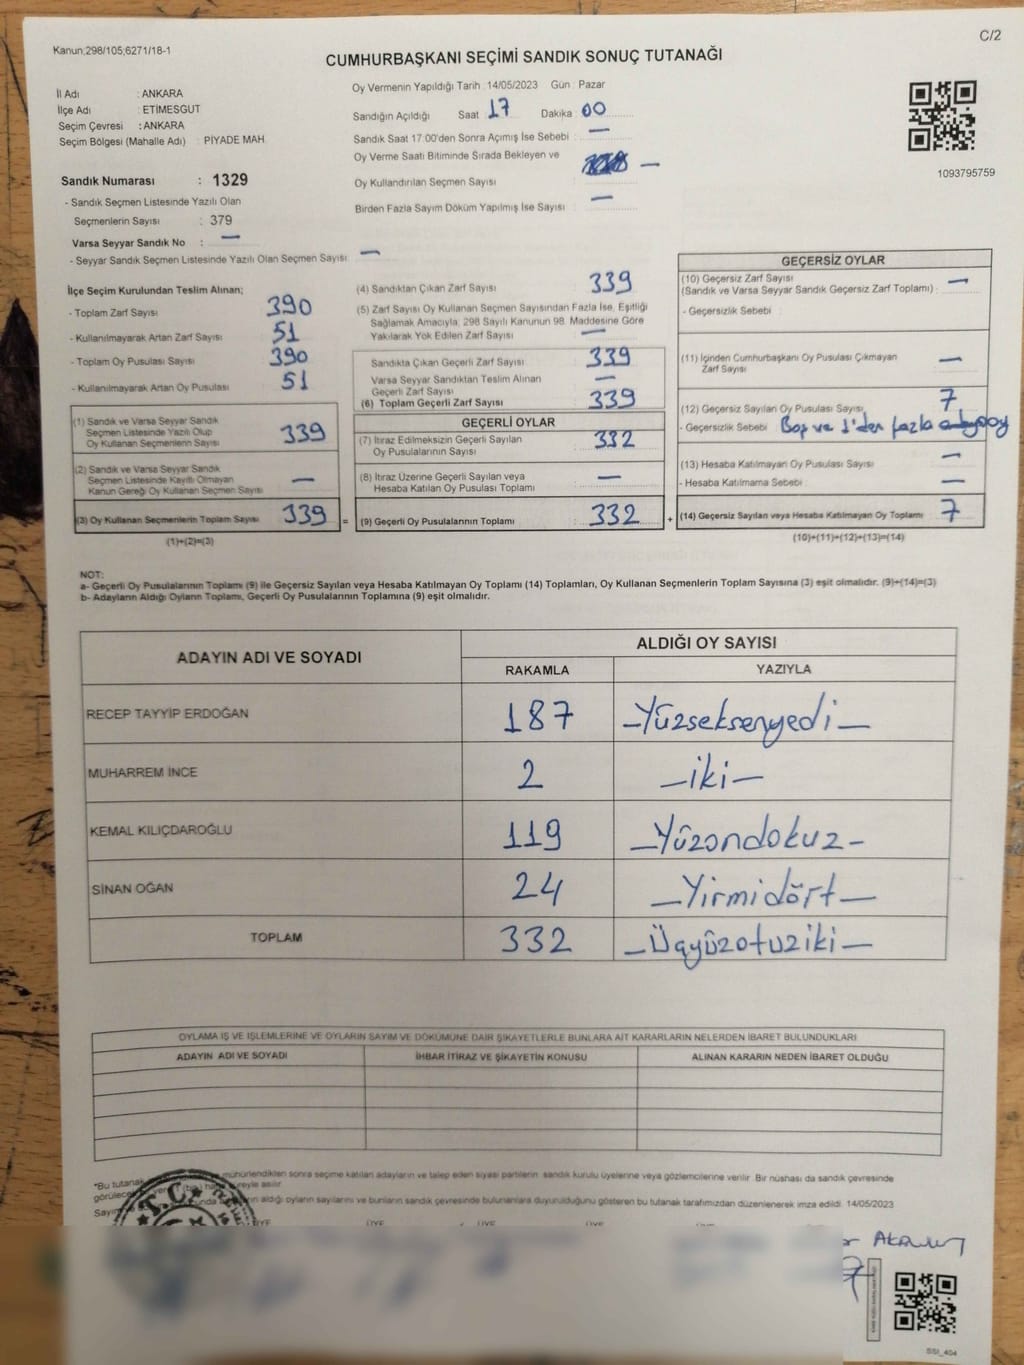 Kanun;298/105;6271/18-1
C/2
CUMHURBAŞKANI SEÇİMİ SANDIK SONUÇ TUTANAĞI
İl Adı : ANKARA
İlçe Adı : ETİMESGUT
Seçim Çevresi : ANKARA
Seçim Bölgesi (Mahalle Adı) : PİYADE MAH.
Sandık Numarası : 1329
- Sandık Seçmen Listesinde Yazılı Olan
Seçmenlerin Sayısı : 379
Varsa Seyyar Sandık No : —
- Seyyar Sandık Seçmen Listesinde Yazılı Olan Seçmen Sayısı : —
Oy Vermenin Yapıldığı Tarih : 14/05/2023 Gün : Pazar
Sandığın Açıldığı Saat 17 Dakika 00
Sandık Saat 17.00'den Sonra Açılmış İse Sebebi : —
Oy Verme Saati Bitiminde Sırada Bekleyen ve
Oy Kullandırılan Seçmen Sayısı : —
Birden Fazla Sayım Döküm Yapılmış İse Sayısı : —
1093795759
İlçe Seçim Kurulundan Teslim Alınan;
- Toplam Zarf Sayısı : 390
- Kullanılmayarak Artan Zarf Sayısı : 51
- Toplam Oy Pusulası Sayısı : 390
- Kullanılmayarak Artan Oy Pusulası : 51
(1) Sandık ve Varsa Seyyar Sandık
Seçmen Listesinde Yazılı Olup
Oy Kullanan Seçmenlerin Sayısı : 339
(2) Sandık ve Varsa Seyyar Sandık
Seçmen Listesinde Kayıtlı Olmayan
Kanun Gereği Oy Kullanan Seçmen Sayısı : —
(3) Oy Kullanan Seçmenlerin Toplam Sayısı : 339 =
(1)+(2)=(3)
(4) Sandıktan Çıkan Zarf Sayısı : 339
(5) Zarf Sayısı Oy Kullanan Seçmen Sayısından Fazla İse, Eşitliği
Sağlamak Amacıyla; 298 Sayılı Kanunun 98. Maddesine Göre
Yakılarak Yok Edilen Zarf Sayısı : —
Sandıkta Çıkan Geçerli Zarf Sayısı : 339
Varsa Seyyar Sandıktan Teslim Alınan
Geçerli Zarf Sayısı : —
(6) Toplam Geçerli Zarf Sayısı : 339
GEÇERLİ OYLAR
(7) İtiraz Edilmeksizin Geçerli Sayılan
Oy Pusulalarının Sayısı : 332
(8) İtiraz Üzerine Geçerli Sayılan veya
Hesaba Katılan Oy Pusulası Toplamı : —
(9) Geçerli Oy Pusulalarının Toplamı : 332 +
GEÇERSİZ OYLAR
(10) Geçersiz Zarf Sayısı
(Sandık ve Varsa Seyyar Sandık Geçersiz Zarf Toplamı) : —
- Geçersizlik Sebebi :
(11) İçinden Cumhurbaşkanı Oy Pusulası Çıkmayan
Zarf Sayısı : —
(12) Geçersiz Sayılan Oy Pusulası Sayısı : 7
- Geçersizlik Sebebi : Boş ve 1'den fazla oy
(13) Hesaba Katılmayan Oy Pusulası Sayısı : —
- Hesaba Katılmama Sebebi : —
(14) Geçersiz Sayılan veya Hesaba Katılmayan Oy Toplamı : 7
(10)+(11)+(12)+(13)=(14)
NOT:
a- Geçerli Oy Pusulalarının Toplamı (9) ile Geçersiz Sayılan veya Hesaba Katılmayan Oy Toplamı (14) Toplamları, Oy Kullanan Seçmenlerin Toplam Sayısına (3) eşit olmalıdır. (9)+(14)=(3)
b- Adayların Aldığı Oyların Toplamı, Geçerli Oy Pusulalarının Toplamına (9) eşit olmalıdır.
ADAYIN ADI VE SOYADI ALDIĞI OY SAYISI
RAKAMLA YAZIYLA
RECEP TAYYİP ERDOĞAN 187 —Yüzseksenyedi—
MUHARREM İNCE 2 —iki—
KEMAL KILIÇDAROĞLU 119 —Yüzondokuz—
SİNAN OĞAN 24 —Yirmidört—
TOPLAM 332 —Üçyüzotuziki—
OYLAMA İŞ VE İŞLEMLERİNE VE OYLARIN SAYIM VE DÖKÜMÜNE DAİR ŞİKAYETLERLE BUNLARA AİT KARARLARIN NELERDEN İBARET BULUNDUKLARI
ADAYIN ADI VE SOYADI İHBAR İTİRAZ VE ŞİKAYETİN KONUSU ALINAN KARARIN NEDEN İBARET OLDUĞU
*Bu tutanak mühürlendikten sonra seçime katılan adayların ve talep eden siyasi partilerin sandık kurulu üyelerine veya gözlemcilerine verilir. Bir nüshası da sandık çevresinde
görülecek
aldığı oyların sayılarını ve bunların sandık çevresinde bulunanlara duyurulduğunu gösteren bu tutanak tarafımızdan düzenlenerek imza edildi. 14/05/2023
T.C.
ÜYE ÜYE ÜYE
SSI_404